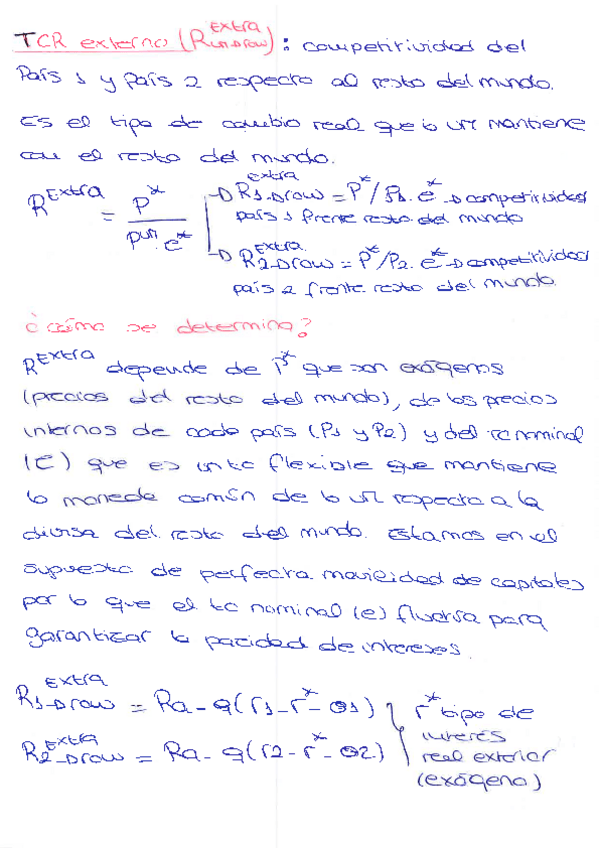 TCR externo (R extra UM→row): competitividad del
País 1 y País 2 respecto al resto del mundo.
Es el tipo de cambio real que la UM mantiene
con el resto del mundo.
R^Extra = P* / P^UM · e*
→ R extra 1→row = P*/P1 · e* → competitividad
país 1 frente resto del mundo
→ R Extra 2→row = P*/P2 · e* → competitividad
país 2 frente resto del mundo
¿cómo se determina?
R^Extra depende de P* que son exógenos
(precios del resto del mundo), de los precios
internos de cada país (P1 y P2) y del tc nominal
(e) que es un tc flexible que mantiene
la moneda común de la UM respecto a la
divisa del resto del mundo. Estamos en el
supuesto de perfecta movilidad de capitales
por lo que el tc nominal (e) fluctua para
garantizar la paridad de intereses.
R Extra 1→row = Ra - q(r1 - r* - θ1)
R Extra 2→row = Ra - q(r2 - r* - θ2)
r* tipo de
interés
real exterior
(exógeno)